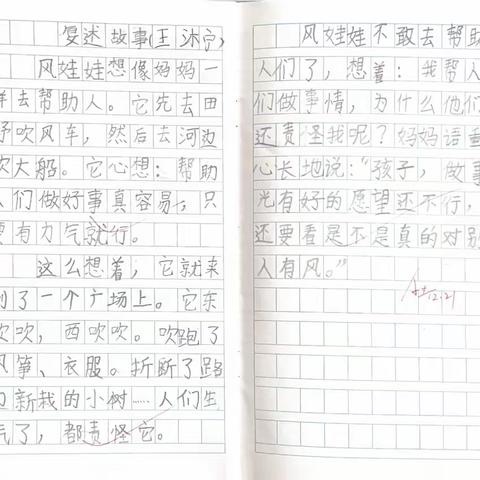 复述故事(王沐宁)
风娃娃想像妈妈一
样去帮助人。它先去田
野吹风车，然后去河边
吹大船。它心想：帮助
人们做好事真容易，只
要有力气就行。
这么想着，它就来
到了一个广场上。它东
吹吹，西吹吹。吹跑了
风筝、衣服。折断了路
边新栽的小树……人们生
气了，都责怪它。
风娃娃不敢去帮助
人们了，想着：我帮人
们做事情，为什么他们
还责怪我呢？妈妈语重
心长地说：“孩子，做事
光有好的愿望还不行，
还要看是不是真的对别
人有风。”
12.21